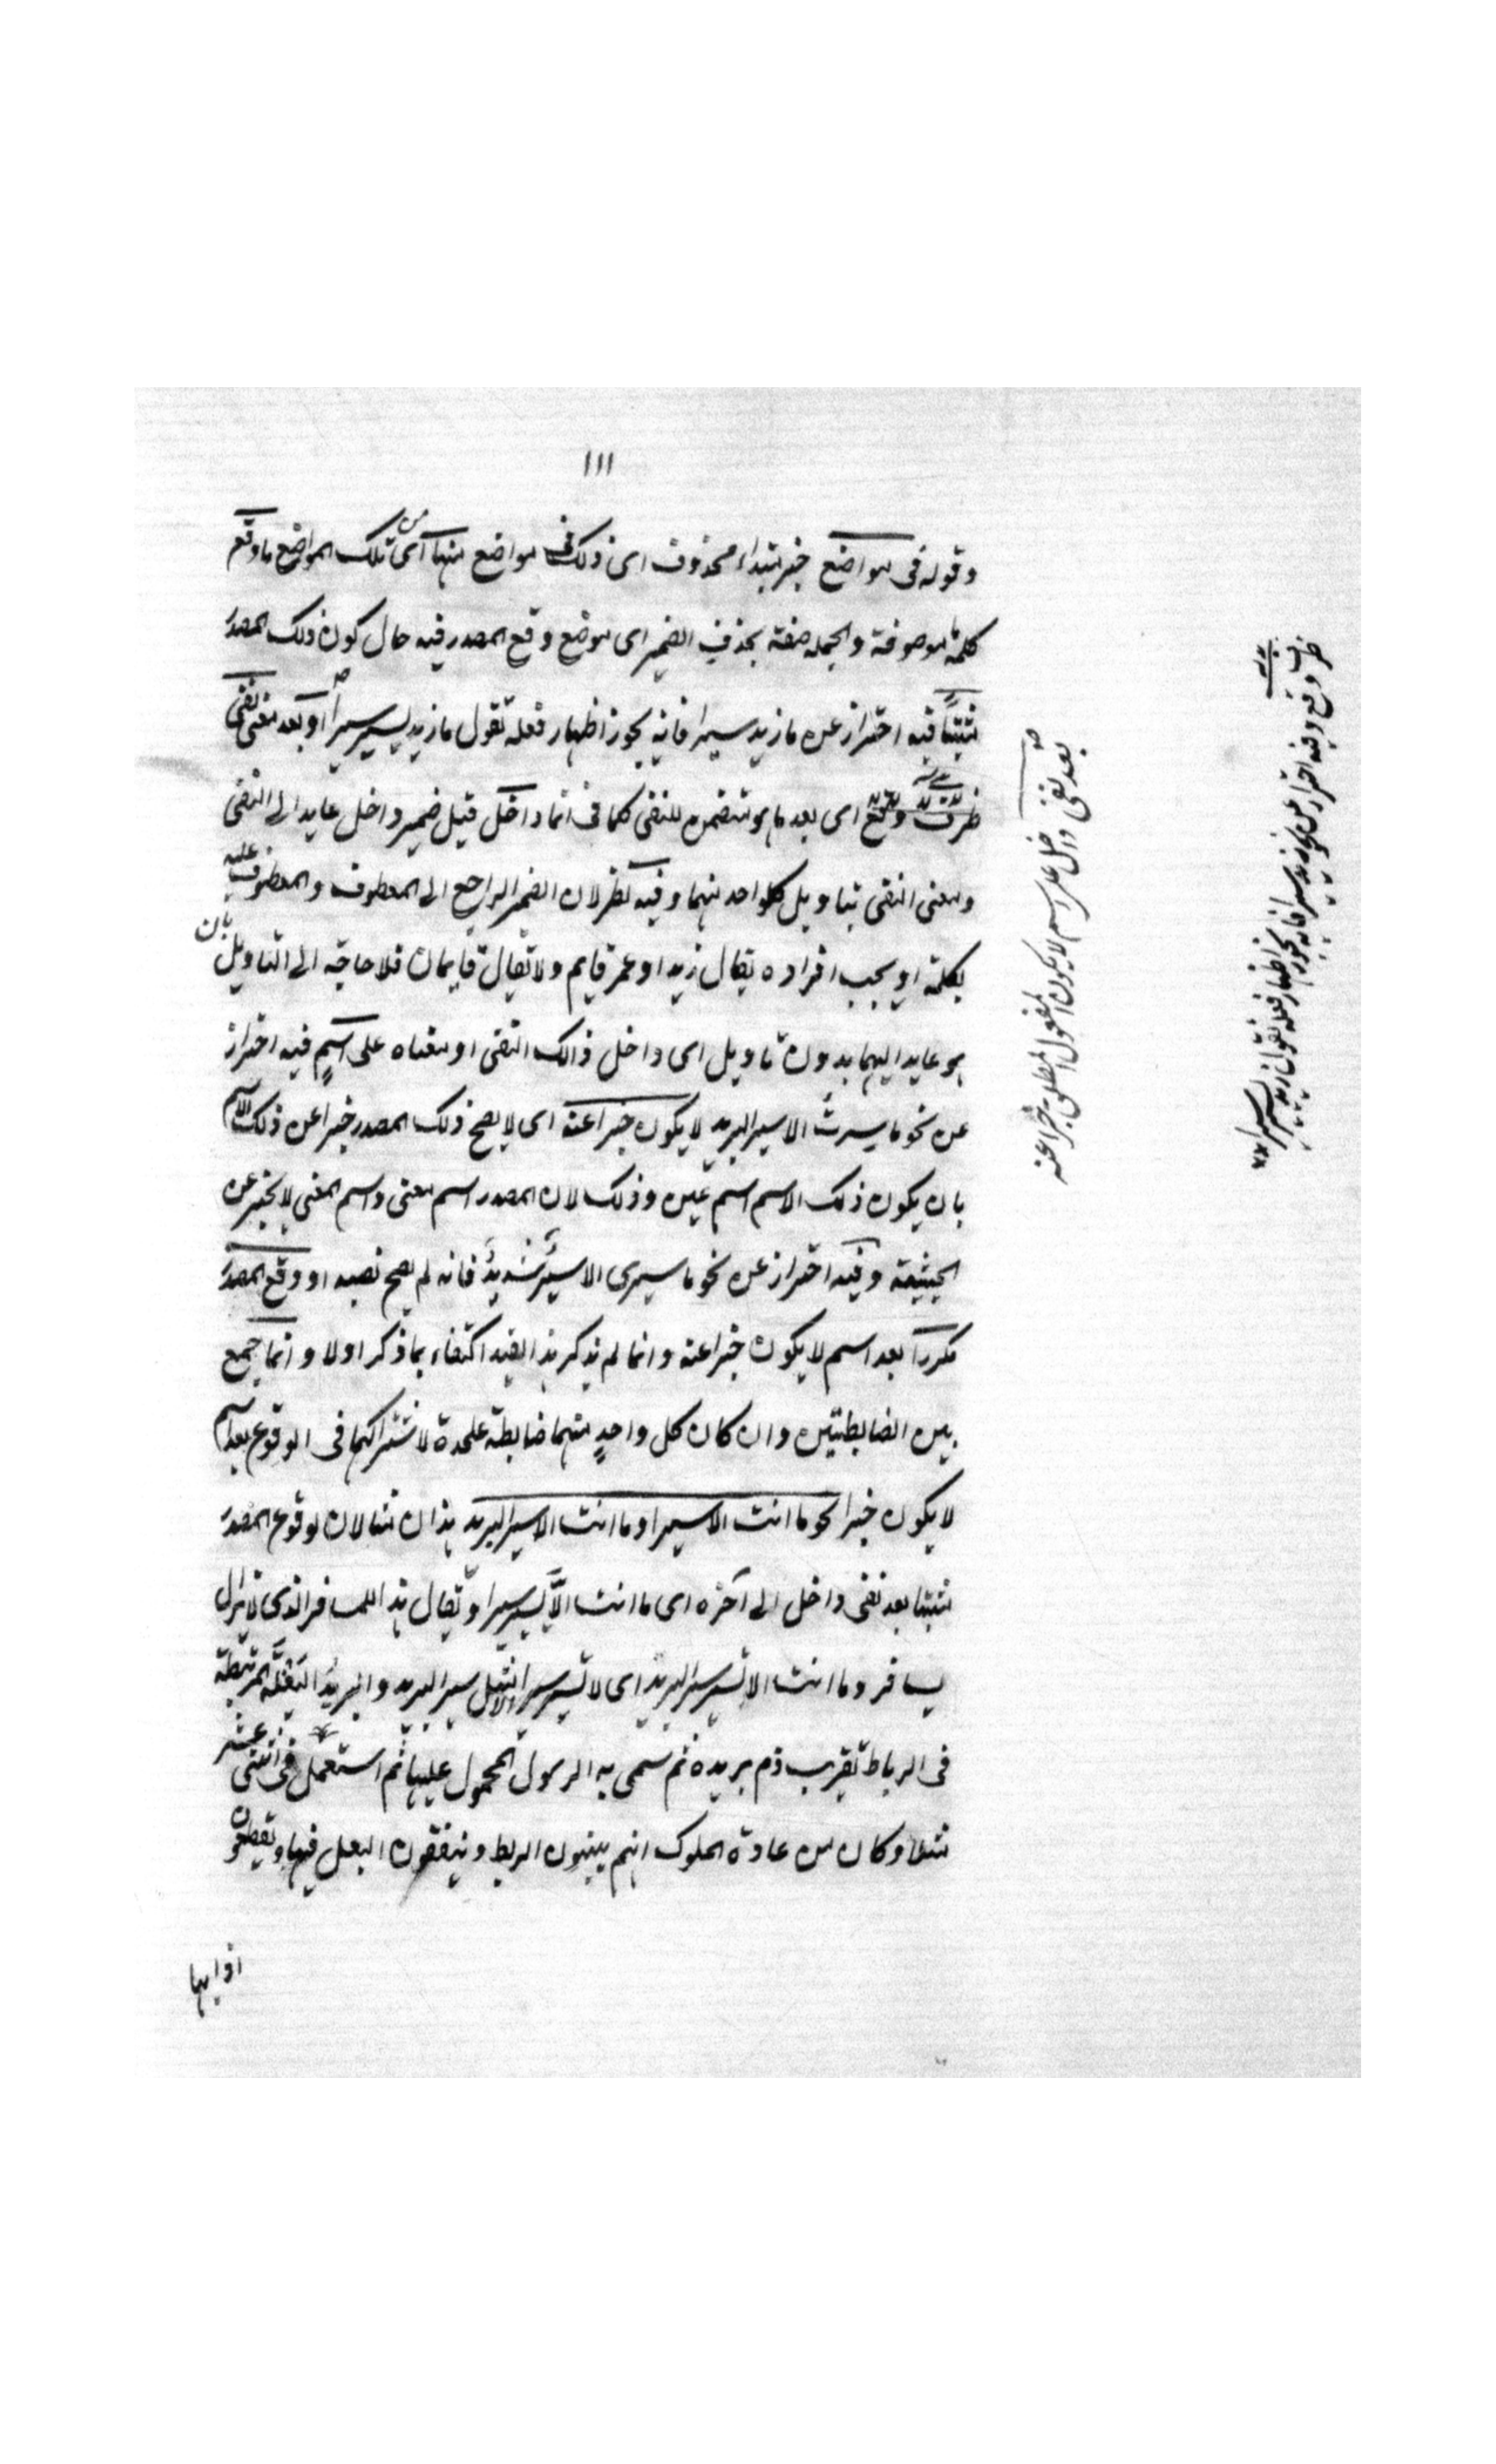 ١١١
وقوله فى مواضع خبر مبتداء محذوف اى ذلك فى مواضع منها اى من تلك المواضع ما وقع
كلمة ما موصوفة والجمله صفة بحذف الضمير اى موضع وقع المصدر فيه حال كون ذلك المصدر
مثبتًا فيه احتراز عن ما زيد سيرا فانه يجوز اظهار فعله تقول ما زيد يسير سيرا او بعد معنى نفى
ظرف وقع اى بعد ما هو متضمن للنفى كما فى انما داخل قيل ضمير داخل عايد الى النفى
ومعنى النفى بتاويل كلواحد منهما وفيه نظر لان الضمير الراجع الى المعطوف والمعطوف عليه
بكلمة او يجب افراده يقال زيد او عمر قايم ولا يقال قايمان فلا حاجة الى التاويل بان
هو عايد اليهما بدون تاويل اى داخل ذالك النفى او معناه على اسمٍ فيه احتراز
عن نحو ما سرتُ الا سير البريد لا يكون خبرا عنه اى لا يصح ذلك المصدر خبرا عن ذلك الاسم
بان يكون ذلك الاسم اسم عين وذلك لان المصدر اسم معنى واسم المعنى لا يخبر عن
الجثيثة وفيه احتراز عن نحو ما سيرى الا سيرٌ شديدٌ فانه لم يصح نصبه او وقع المصدر
مكررا بعد اسم لا يكون خبرا عنه وانما لم يذكر هذا القيد اكتفاء بما ذكر اولا وانما جمع
بين الضابطتين وان كان كل واحدٍ منهما ضابطة علحدة لاشتراكهما فى الوقوع بعد اسم
لا يكون خبرا نحو ما انت الا سيرا وما انت الا سير البريد هذان مثالان لوقوع المصدر
مثبتا بعد نفى داخل الى آخره اى ما انت الا يسير سيرا ويقال هذا للمسافر الذى لا يزال
يسافر وما انت الا تسير سير البريد اى لا تسير سيرا الا مثل سير البريد والبريد البغلة المرتبطة
فى الرباط تقريب دم بريده ثم سمى به الرسول المحمول عليها ثم استعمل فى اثنى عشر
ميلا وكان من عادة الملوك انهم يبنون الربط وينفقون البغل فيها ويقطعون
اذنابها
بعد نفى داخل على اسم لا يكون المفعول المطلق خبرا عنه
ظرف وقع وفيه احتراز عن نحو زيد سيرا فانه يجوز اظهار فعله تقول زيد يسير سيرا ١٢